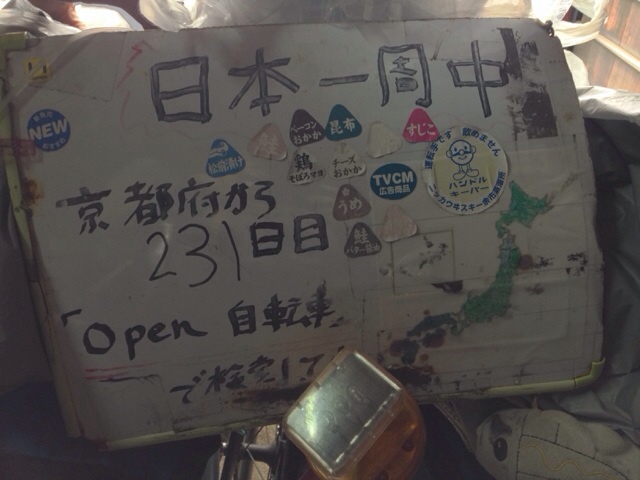 日本一周中
NEW
ベーコン
おかか
昆布
すじこ
運転手です 飲めません
ハンドル
キーパー
ニッカウヰスキー余市蒸溜所
松前漬け
鮭
鶏
そぼろマヨ
チーズ
おかか
TVCM
広告商品
うめ
鮭
京都府から
231日目
「Open 自転車
で検索して